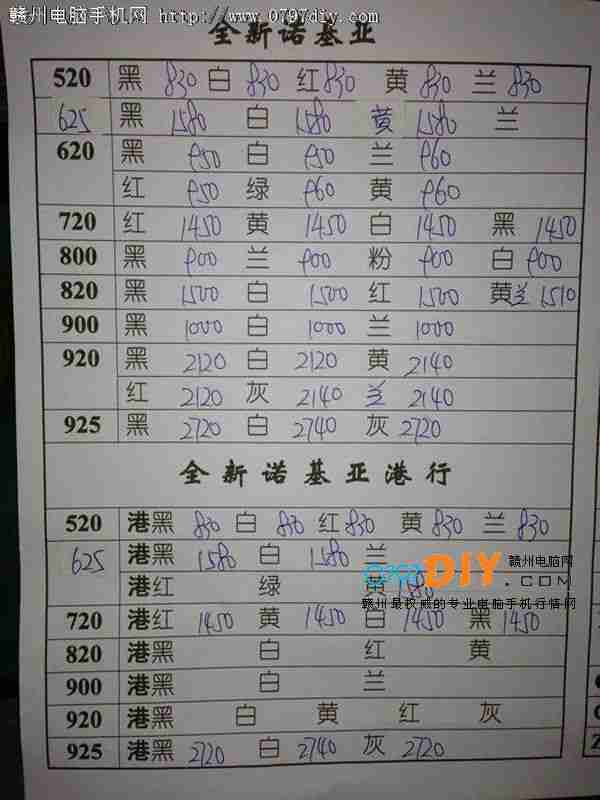 赣州电脑手机网 http://www.0797diy.com
全新诺基亚
520 黑 830 白 830 红 830 黄 830 兰 830
625 黑 1580 白 1580 黄 1580 兰
620 黑 950 白 950 兰 960
红 950 绿 960 黄 960
720 红 1450 黄 1450 白 1450 黑 1450
800 黑 900 兰 900 粉 900 白 900
820 黑 1500 白 1500 红 1500 黄兰 1510
900 黑 1000 白 1000 兰 1000
920 黑 2120 白 2120 黄 2140
红 2120 灰 2140 兰 2140
925 黑 2720 白 2740 灰 2720
全新诺基亚港行
520 港黑 830 白 830 红 830 黄 830 兰 830
625 港黑 1580 白 1580 兰
港红 绿 黄
DIY 赣州电脑网 .COM
赣州最权威的专业电脑手机行情网
720 港红 1450 黄 1450 白 1450 黑 1450
820 港黑 白 红 黄
900 港黑 白 兰
920 港黑 白 黄 红 灰
925 港黑 2720 白 2740 灰 2720